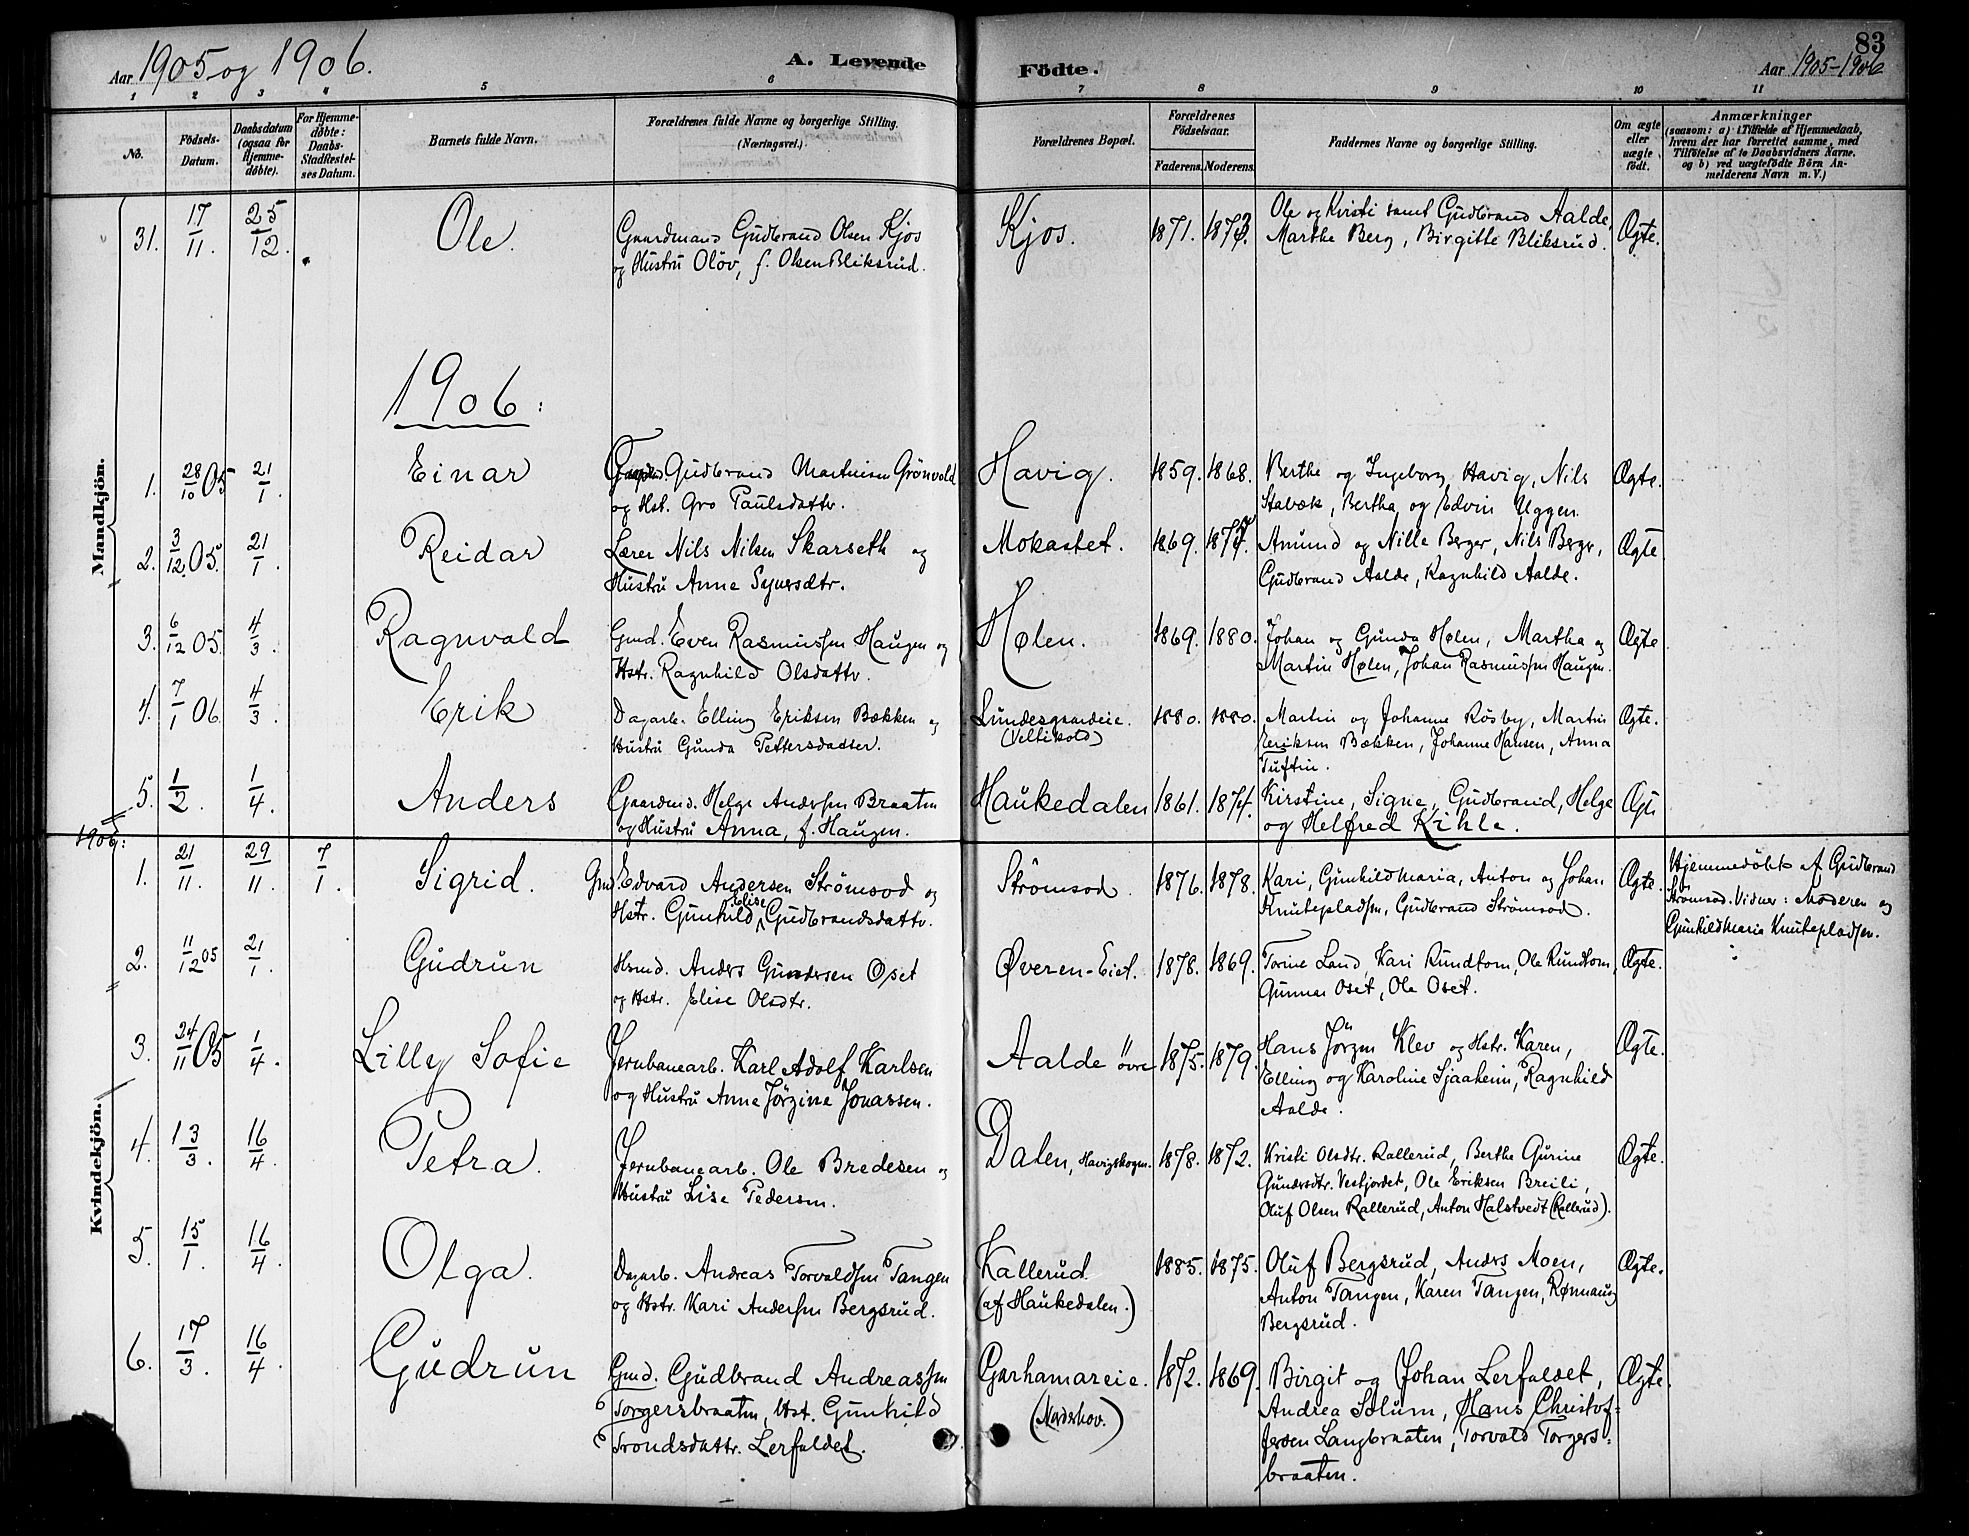 Aar 1905 og 1906.
A. Levende
Födte.
83
Aar 1905-1906
1 2 3 4 5 6 7 8 9 10 11
No.
Födsels-Datum.
Daabsdatum (ogsaa for Hjemme-döbte).
For Hjemme-döbte: Daabs-Stadfæstel-ses Datum.
Barnets fulde Navn.
Forældrenes fulde Navne og borgerlige Stilling. (Næringsvei.)
Forældrenes Bopæl.
Forældrenes Födselsaar.
Faderens. Moderens.
Faddernes Navne og borgerlige Stilling.
Om ægte eller uægte födt.
Anmærkninger
(saasom: a) i Tilfælde af Hjemmedaab, hvem der har forrettet samme, med Tilföielse af to Daabsvidners Navne, og b) ved uægtefödte Börn An-melderens Navn m. V.)
Mandkjön.
31. 17/11. 25/12. Ole. Gaardmand Gudbrand Olsen Kjos Kjos. 1871. 1873. Ole og Kirsti samt Gudbrand Aalde, Ægte.
og Hustru Olöv, f. Olsen Bliksrud. Marthe Berg, Birgitte Bliksrud.
1906:
1. 28/10 05 21/1. Einar Gudbrand Martinsen Grönvold Havig. 1859. 1868. Berthe og Ingeborg Havig, Nils Ægte.
og Hst. Gro Paulsdattr. Stabæk, Bertha og Edvin Uggen.
2. 3/12 05. 21/1. Reidar Lærer Nils Nilsen Skarseth og Mokastet. 1869. Amund og Nille Berger, Nils Berger, Ægte
Hustru Anne Syversdtr. Gudbrand Aalde, Ragnhild Aalde.
3. 6/12 05. 4/3. Ragnvald Gmd. Even Rasmussen Haugen og Hølen. 1869. 1880. Johan og Gunda Hølen, Martha og Ægte
Hstr. Ragnhild Olsdattr. Martin Hølen, Johan Rasmussen Haugen.
4. 7/1 06. 4/3. Erik Dagarb. Elling Eriksen Bækken og Lundesgaardeie. 1880. 1880. Martin og Johanne Rösby, Martin Ægte.
Hustru Gunda Pettersdatter. (Veltikold) Eeriksen Bækken, Johanne Hansen, Anna
Tuftin.
5. 1/2. 1/4. Anders Gaardmd. Helge Andersen Braaten Haukedalen 1861. 1874. Kirstine, Signe, Gudbrand, Helge Ægte
og Hustru Anna, f. Haugen. og Helfred Kihle.
1906:
Kvindekjön.
1. 21/11. 29/11. 7/1. Sigrid. Gmd. Edvard Andersen Strömsod og Strömsod. 1876. 1878. Kari, Gunhildmaria, Anton og Johan Ægte. Hjemmedöbt af Gudbrand
Hstr. Gunhild Elise Gudbrandsdattr. Knutepladsen, Gudbrand Strömsod. Strömsod. Vidner: Moderen og
Gunhildmaria Knutepladsen.
2. 11/12 05 21/1. Gudrun Hsmd. Anders Gundersen Oset Øveren-Eiet. 1878. 1869. Torine Land, Kari Rundtom, Ole Rundtom, Ægte.
og Hstr. Elise Olsdtr. Gunnar Oset, Ole Oset.
3. 24/11 05 1/4. Lilly Sofie Jernbanearb. Karl Adolf Karlsen Aalde övre 1875. 1879. Hans Jörgen Klev og Hstr. Karen, Ægte.
og Hustru Anne Jörgine Jonassen. Elling og Karoline Sjaaheim, Ragnhild
Aalde.
4. 13/3. 16/4. Petra. Jernbanearb. Ole Bredesen og Dalen, Havigskogen. 1878. 1872. Kristi Olsdtr. Rallerud, Berthe Gurine Ægte.
Hustru Lise Pedersen. Gundersdtr. Vestjordet, Ole Eriksen Breili,
Oluf Olsen Rallerud, Anton Halstvedt (Rallerud).
5. 15/1. 16/4. Olga. Dagarb. Andreas Torvaldsen Tangen Kallerud 1885. 1875. Oluf Bergsrud, Anders Moen, Ægte.
og Hstr. Kari Andersen Bergsrud. (af Haukedalen.) Anton Tangen, Karen Tangen, Rønnaug
Bergsrud.
6. 17/3. 16/4. Gudrun Gmd. Gudbrand Andreassen Garhamareie. 1872. 1869. Birgit og Johan Lerfaldet, Ægte.
Torgersbraaten, Hst. Gunhild (Norderhov.) Andrea Solum, Hans Christof=
Trondsdattr. Lerfaldet. fersen Langbraaten, Torvald Torgers=
braaten.